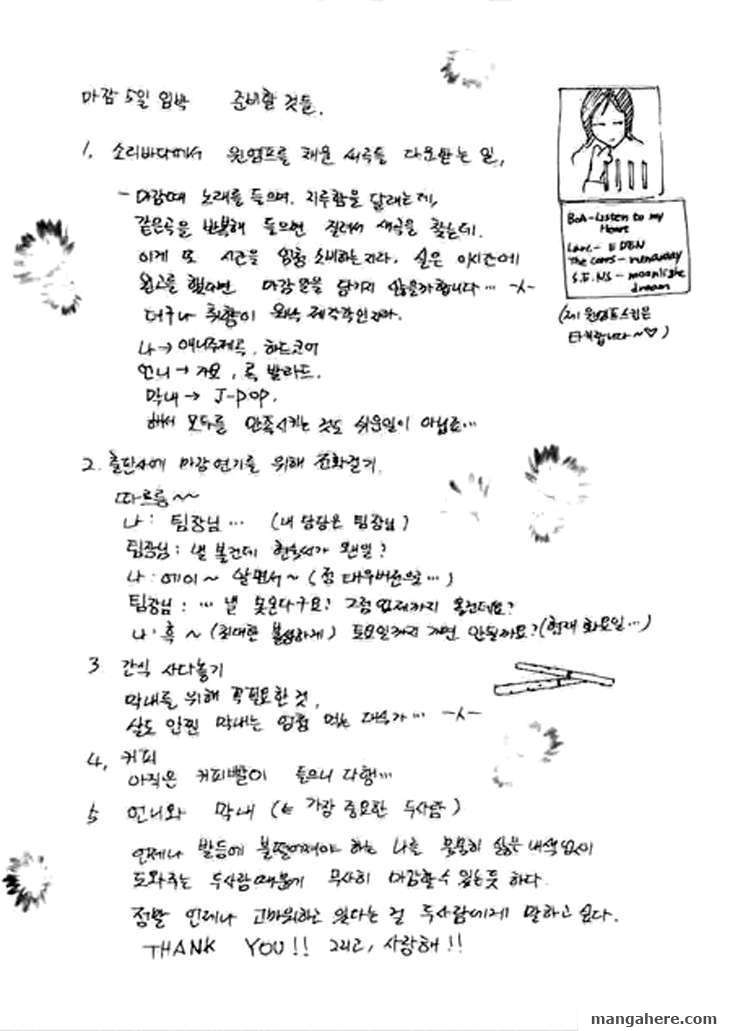 마감 5일 임박 준비할 것들.
1. 소리바다에서 윈엠프를 채울 새곡들 다운받는 일,
- 마감때 노래를 들으며. 지루함을 달래는데,
같은곡을 반복해 들으면 질려서 새곡을 찾는데.
이게 또 시간을 엄청 소비하는지라, 실은 이시간에
원고를 했다면 마감 을 넘기지 않을까합니다... -ㅅ-
더구나 취향이 워낙 제각각인지라.
나→ 애니주제곡, 하드코어
언니→ 가요, 록 발라드.
막내→ J-POP.
해서 모두를 만족시키는 것도 쉬운일이 아닙죠...
2. 출판사에 마감 연기를 위해 전화걸기.
따르릉~~
나: 팀장님... (내 담당은 팀장님)
팀장님: 낼 볼건데 현숙씨가 왠일?
나: 에이~ 알면서~ (좀 태우버전으로...)
팀장님: ... 낼 못온다구요? 그럼 언제까지 올건데요?
나: 흑~ (최대한 불쌍하게) 토요일까지 가면 안될까요? (현재 화요일...)
3 간식 사다놓기
막내를 위해 꼭필요한 것,
살도 안찐 막내는 엄청 먹는 대식가... -ㅅ-
4, 커피
아직은 커피빨이 들으니 다행...
5 언니와 막내 (← 가장 중요한 두사람)
언제나 발등에 불떨어져야 하는 나를 묵묵히 싫은 내색없이
도와주는 두사람때문에 무사히 마감할수 있는듯 하다.
정말 언제나 고마워하고 있다는 걸 두사람에게 말하고 싶다.
THANK YOU!! 그리고, 사랑해!!
BoA-Listen to my
Heart
Larc- EDEN
The corrs - runaway
S.E.NS - moonlight
dream
(제 윈엠프스킨은
타키랍니다~♡)
mangahere.com